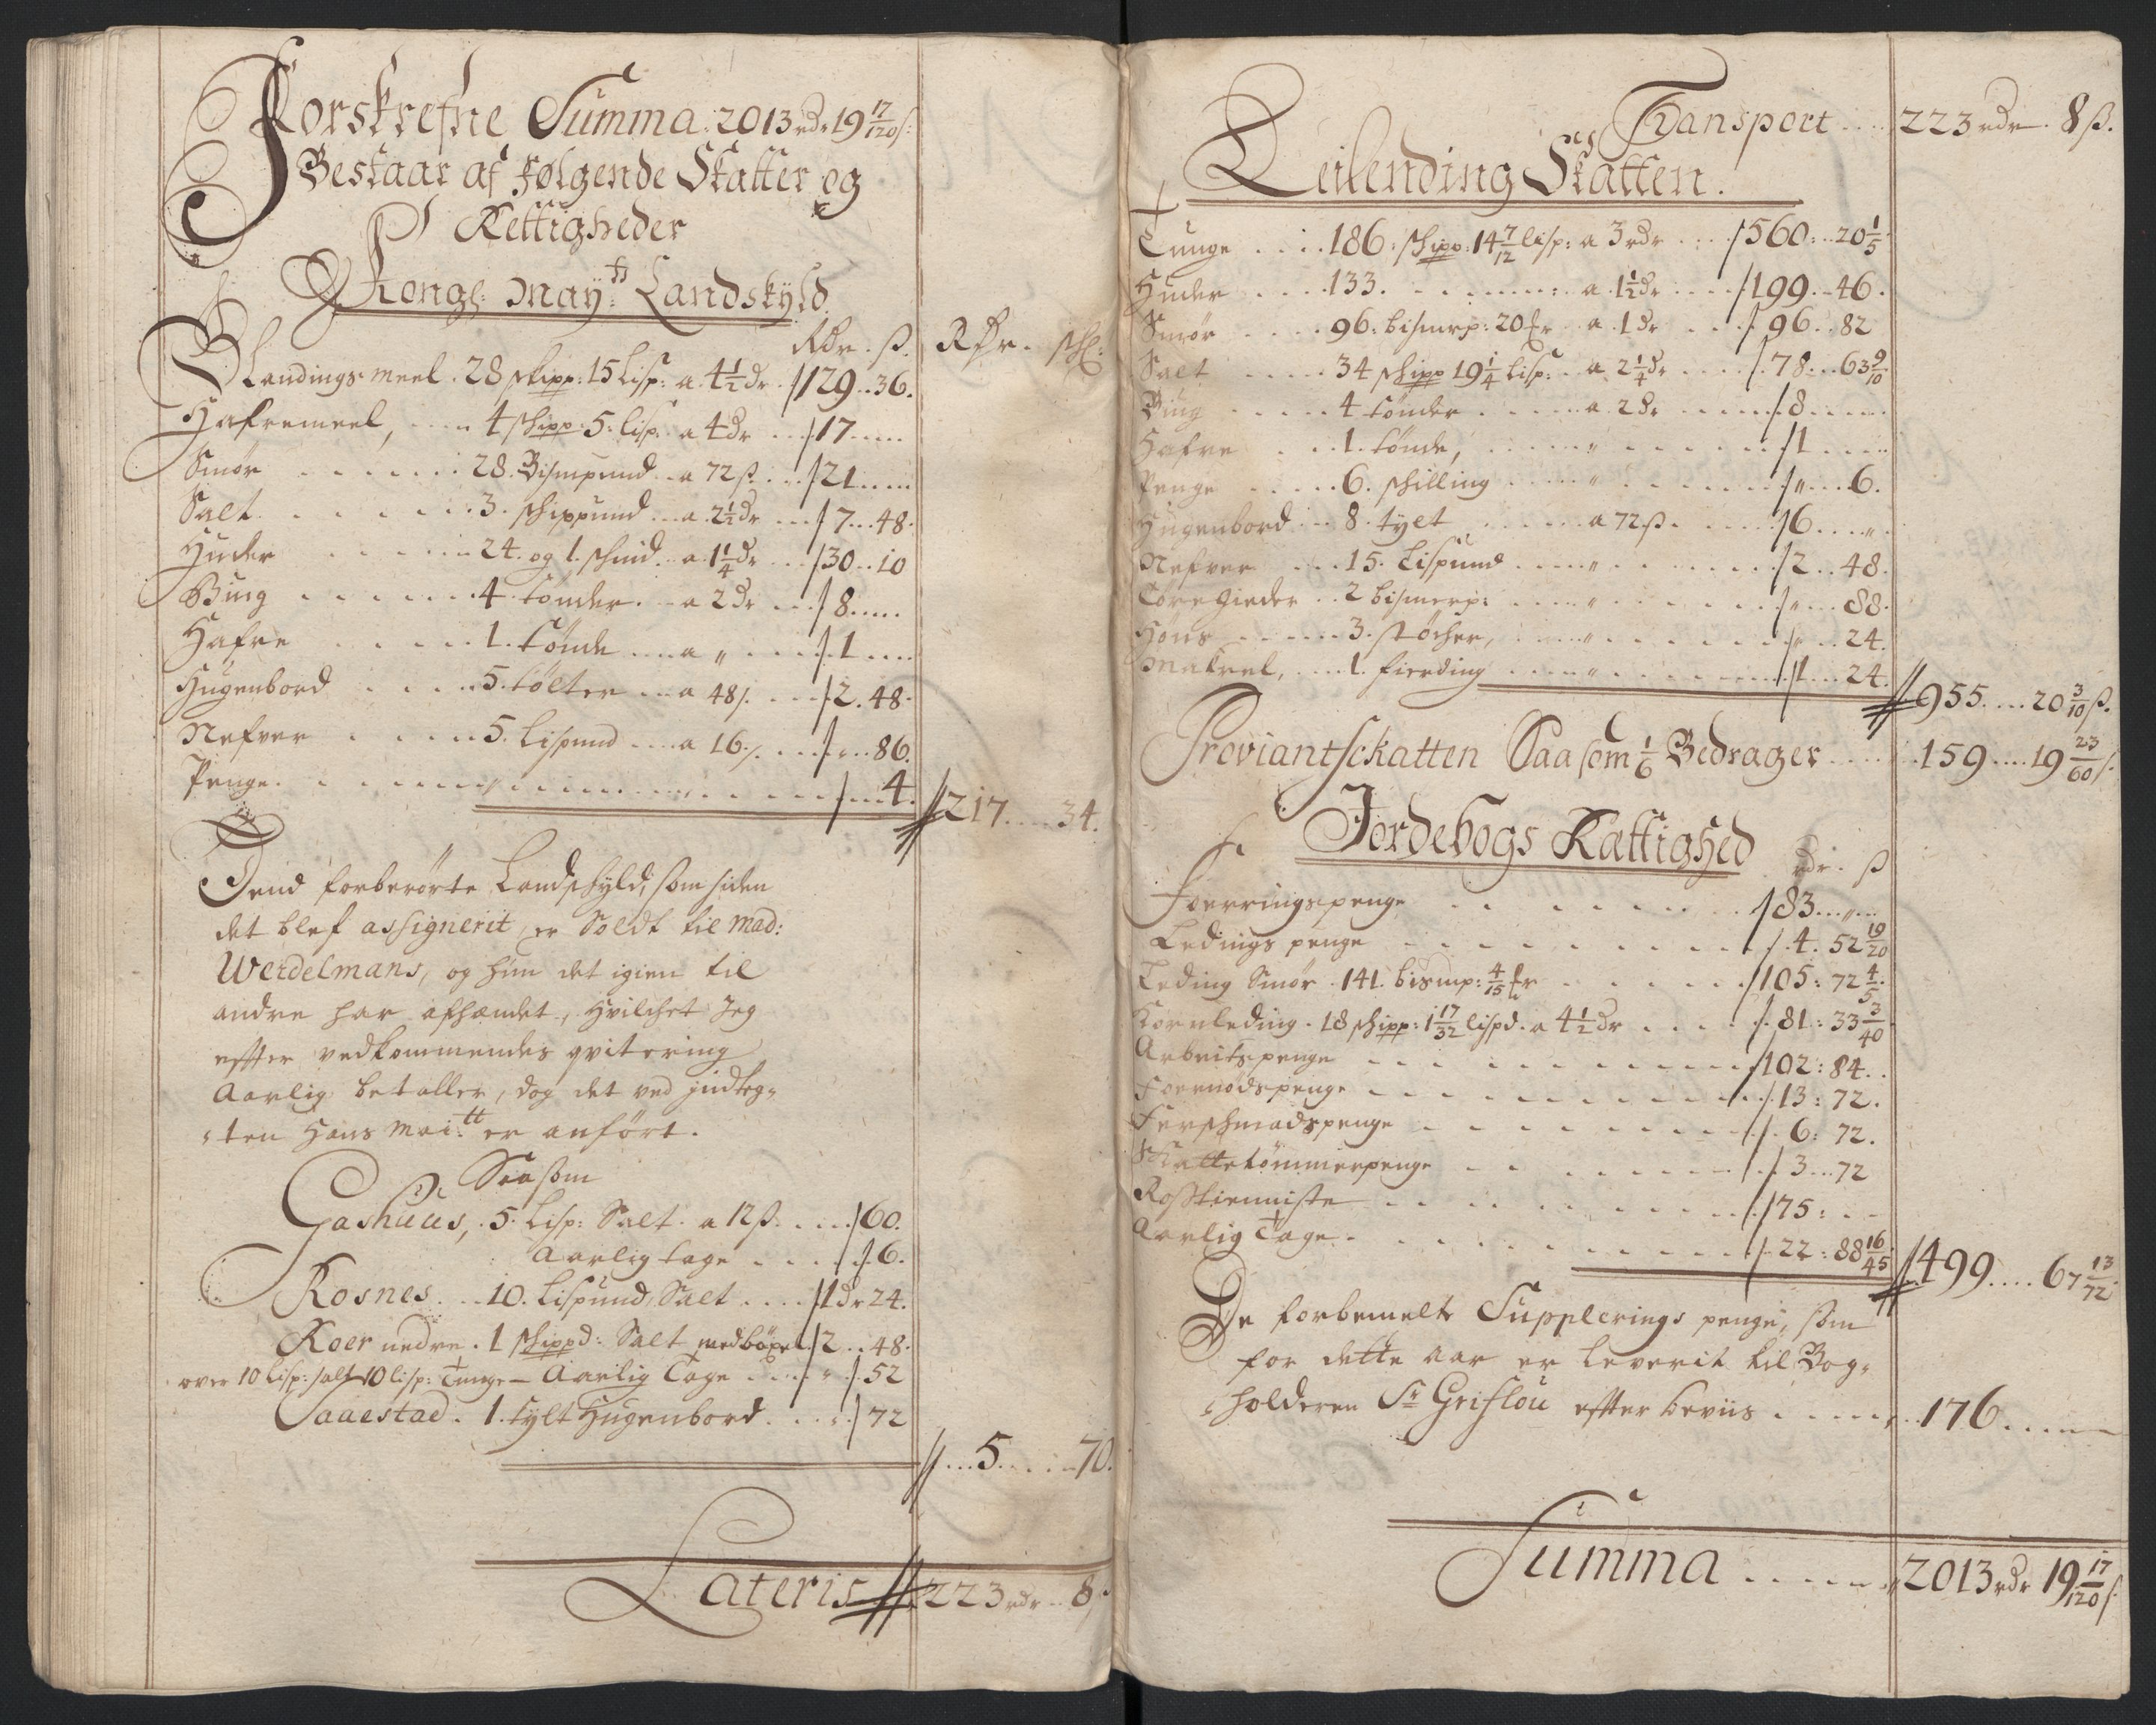 Forskrefne Summa: 2013 rdr 19 17/120 ß:
Bestaar af følgende Skatter og
Rettigheder
Kongl: May:tt Landskÿld.
Rdr. ß. Rdr. schl:
Blandings meel. 28 skipp: 15 Lisp: a 4 1/2 dr. 129..36.
Hafremeel, .... 4 schipp: 5: lisp: a 4 dr ... 17.....
Smør ...... 28. Bismpund .. a 72 ß. ... 21.....
Salt ...... 3. schippund ... a 2 1/2 dr ... 7...48.
Huder ..... 24. og 1. schind. a 1 1/4 dr ... 30..10
Biug ...... 4 tønder. .. a 2 dr ... 8.....
Hafre ..... 1. tønde .... a " .... 1 ....
Hugenbord .... 5. tølter ... a 48 ß. ... 2. 48.
Nefver ..... 5. Lispund .... a 16 ß. ... "..86.
Penge. ...... " ...... " .... 4.
217.....34.
Dend forberørte Landschyld, som siden
det blef assignerit, er Soldt til Mad:
Werdelmans, og hun det igien til
andre har afhændet, hvilchet Jeg
effter vedkommendes qvitering
Aarlig betaller, dog det ved jndteg-
-ten Hans Mai:tt er anført.
Saasom
Gashuus, . 5. Lisp: Salt. a 12 ß. .... 60.
Aarlig tage .... 6.
Rosnes. .. 10. Lispund Salt .... 1 dr 24.
Roer nedre. 1 schippd: Salt medböxel 2 .. 48.
over 10 Lisp: salt 10 lisp: Tunge – Aarlig Tage .... " . 52
Saaestad. 1. tylt Hugenbord. ... 72
... 5.....70.
Lateris 223 rdr .. 8 ß.
Transport .... 223 rdr. 8 ß.
Leilending Skatten.
Tunge .... 186: schipp: 14 7/12 lisp: a 3 rdr .... 560:..20 1/5
Huder .... 133. ........: a 1 1/2 dr .... 199..46.
Smør .... 96: bismerp: 20 fr .. a 1 dr ... 96..82
Salt ..... 34 schipp 19 1/4 lisp: . a 2 1/4 dr .... 78...63 9/10
Biug ..... 4 tønder ..... a 2 dr ..... 8 .....
Hafre .. 1. tønde, ..... " ...... 1 .....
Penge .... 6. schilling .... " ..... "....6.
Hugenbord .. 8. tylt ..... a 72 ß. .... 6.....".
Nefver ... 15. Lispund .... " ...... 2..48.
Tøre gieder .. 2 bismerp: .... " ...... "...88.
Høns ..... 3. støcher, .... " ...... " .. 24.
Makrel, ... 1. fierding .... " ...... 1...24.
955....20 3/10 ß.
Proviantschatten Saasom 1/6 Bedrager .... 159....19 23/60 ß.
Jordebogs Rættighed
rdr. ß
Foerringspenge ....... 83...."...
Ledings penge ........ 4. 52 19/20
Leding Smør. 141. bismp: 4/15 fr ...... 105: 72 4/5.
Kornleding. 18 schipp: 1 17/32 lispd. a 4 1/2 dr .... 81: 33 3/40
Arbeitspenge ........ 102: 84..
Foernødspenge ........ 13: 72.
Ferschmadspenge ........ 6: 72.
Skattetømmerpenge ....... 3...72
Rosstienniste ........ 75: ..
Aarlig Tage ......... 22: 88 16/45.
499....67 13/72.
De forbemelte Supplerings penge, som
for dette aar er leverit til Bog-
-holderen Sr Griflou effter beviis ..... 176......
Summa ...... 2013 rdr 19 17/120 ß